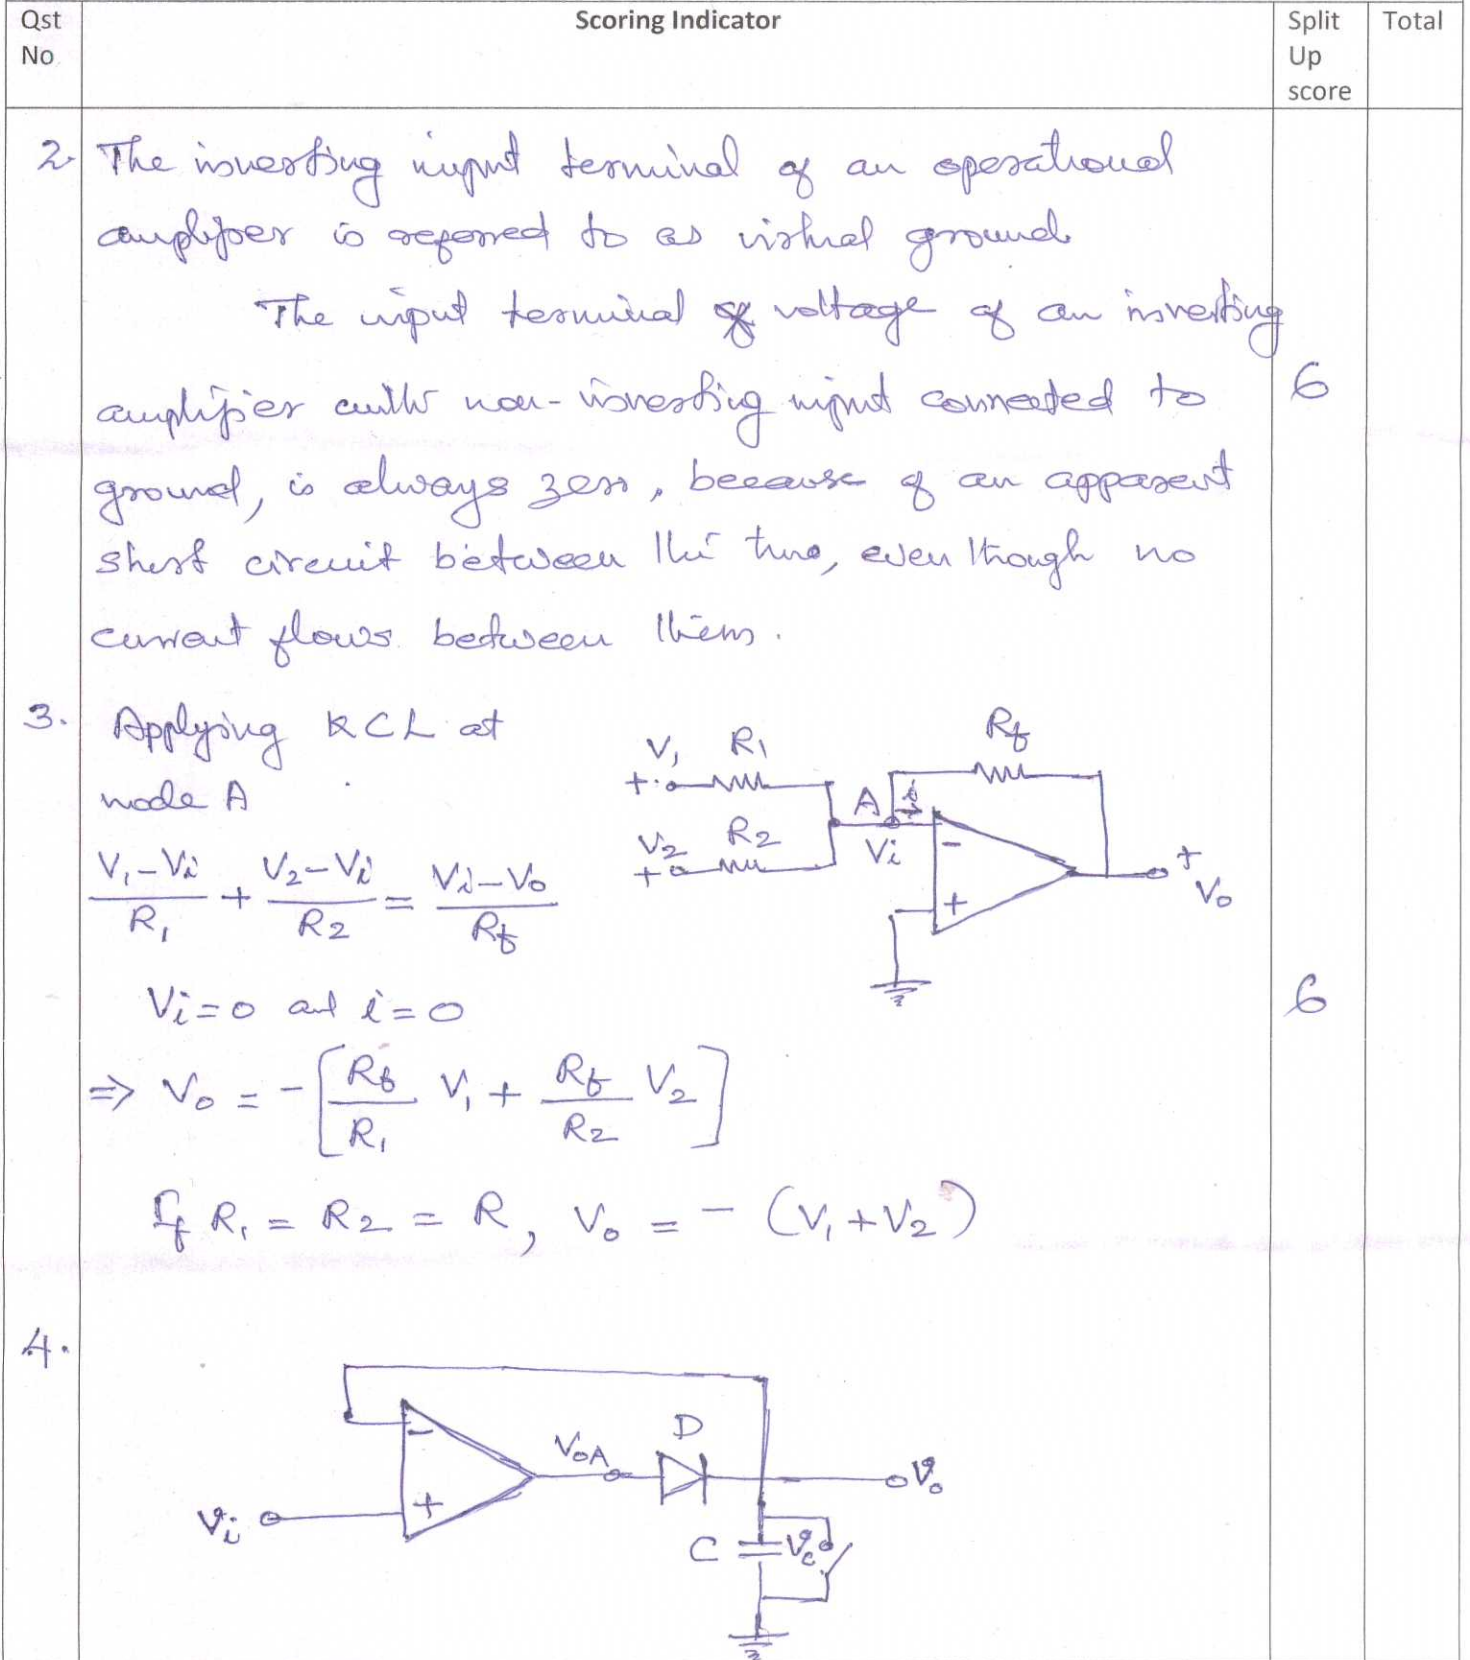 Qst No
Scoring Indicator
Split Up score
Total
2. The inverting input terminal of an operational
amplifier is referred to as virtual ground
The input terminal of voltage of an inverting
amplifier with non-inverting input connected to
ground, is always zero, because of an apparent
short circuit between the two, even though no
current flows between them.
6
3. Applying KCL at
node A
V1-Vi/R1 + V2-Vi/R2 = Vi-Vo/Rf
Vi=0 and i=0
⇒ Vo = -[Rf/R1 V1 + Rf/R2 V2]
If R1 = R2 = R, Vo = - (V1+V2)
V1 R1
+
V2 R2
+
A i
Vi
Rf
-
+
+
Vo
6
4.
-
+
Vi
VoA
D
Vo
C
Vc